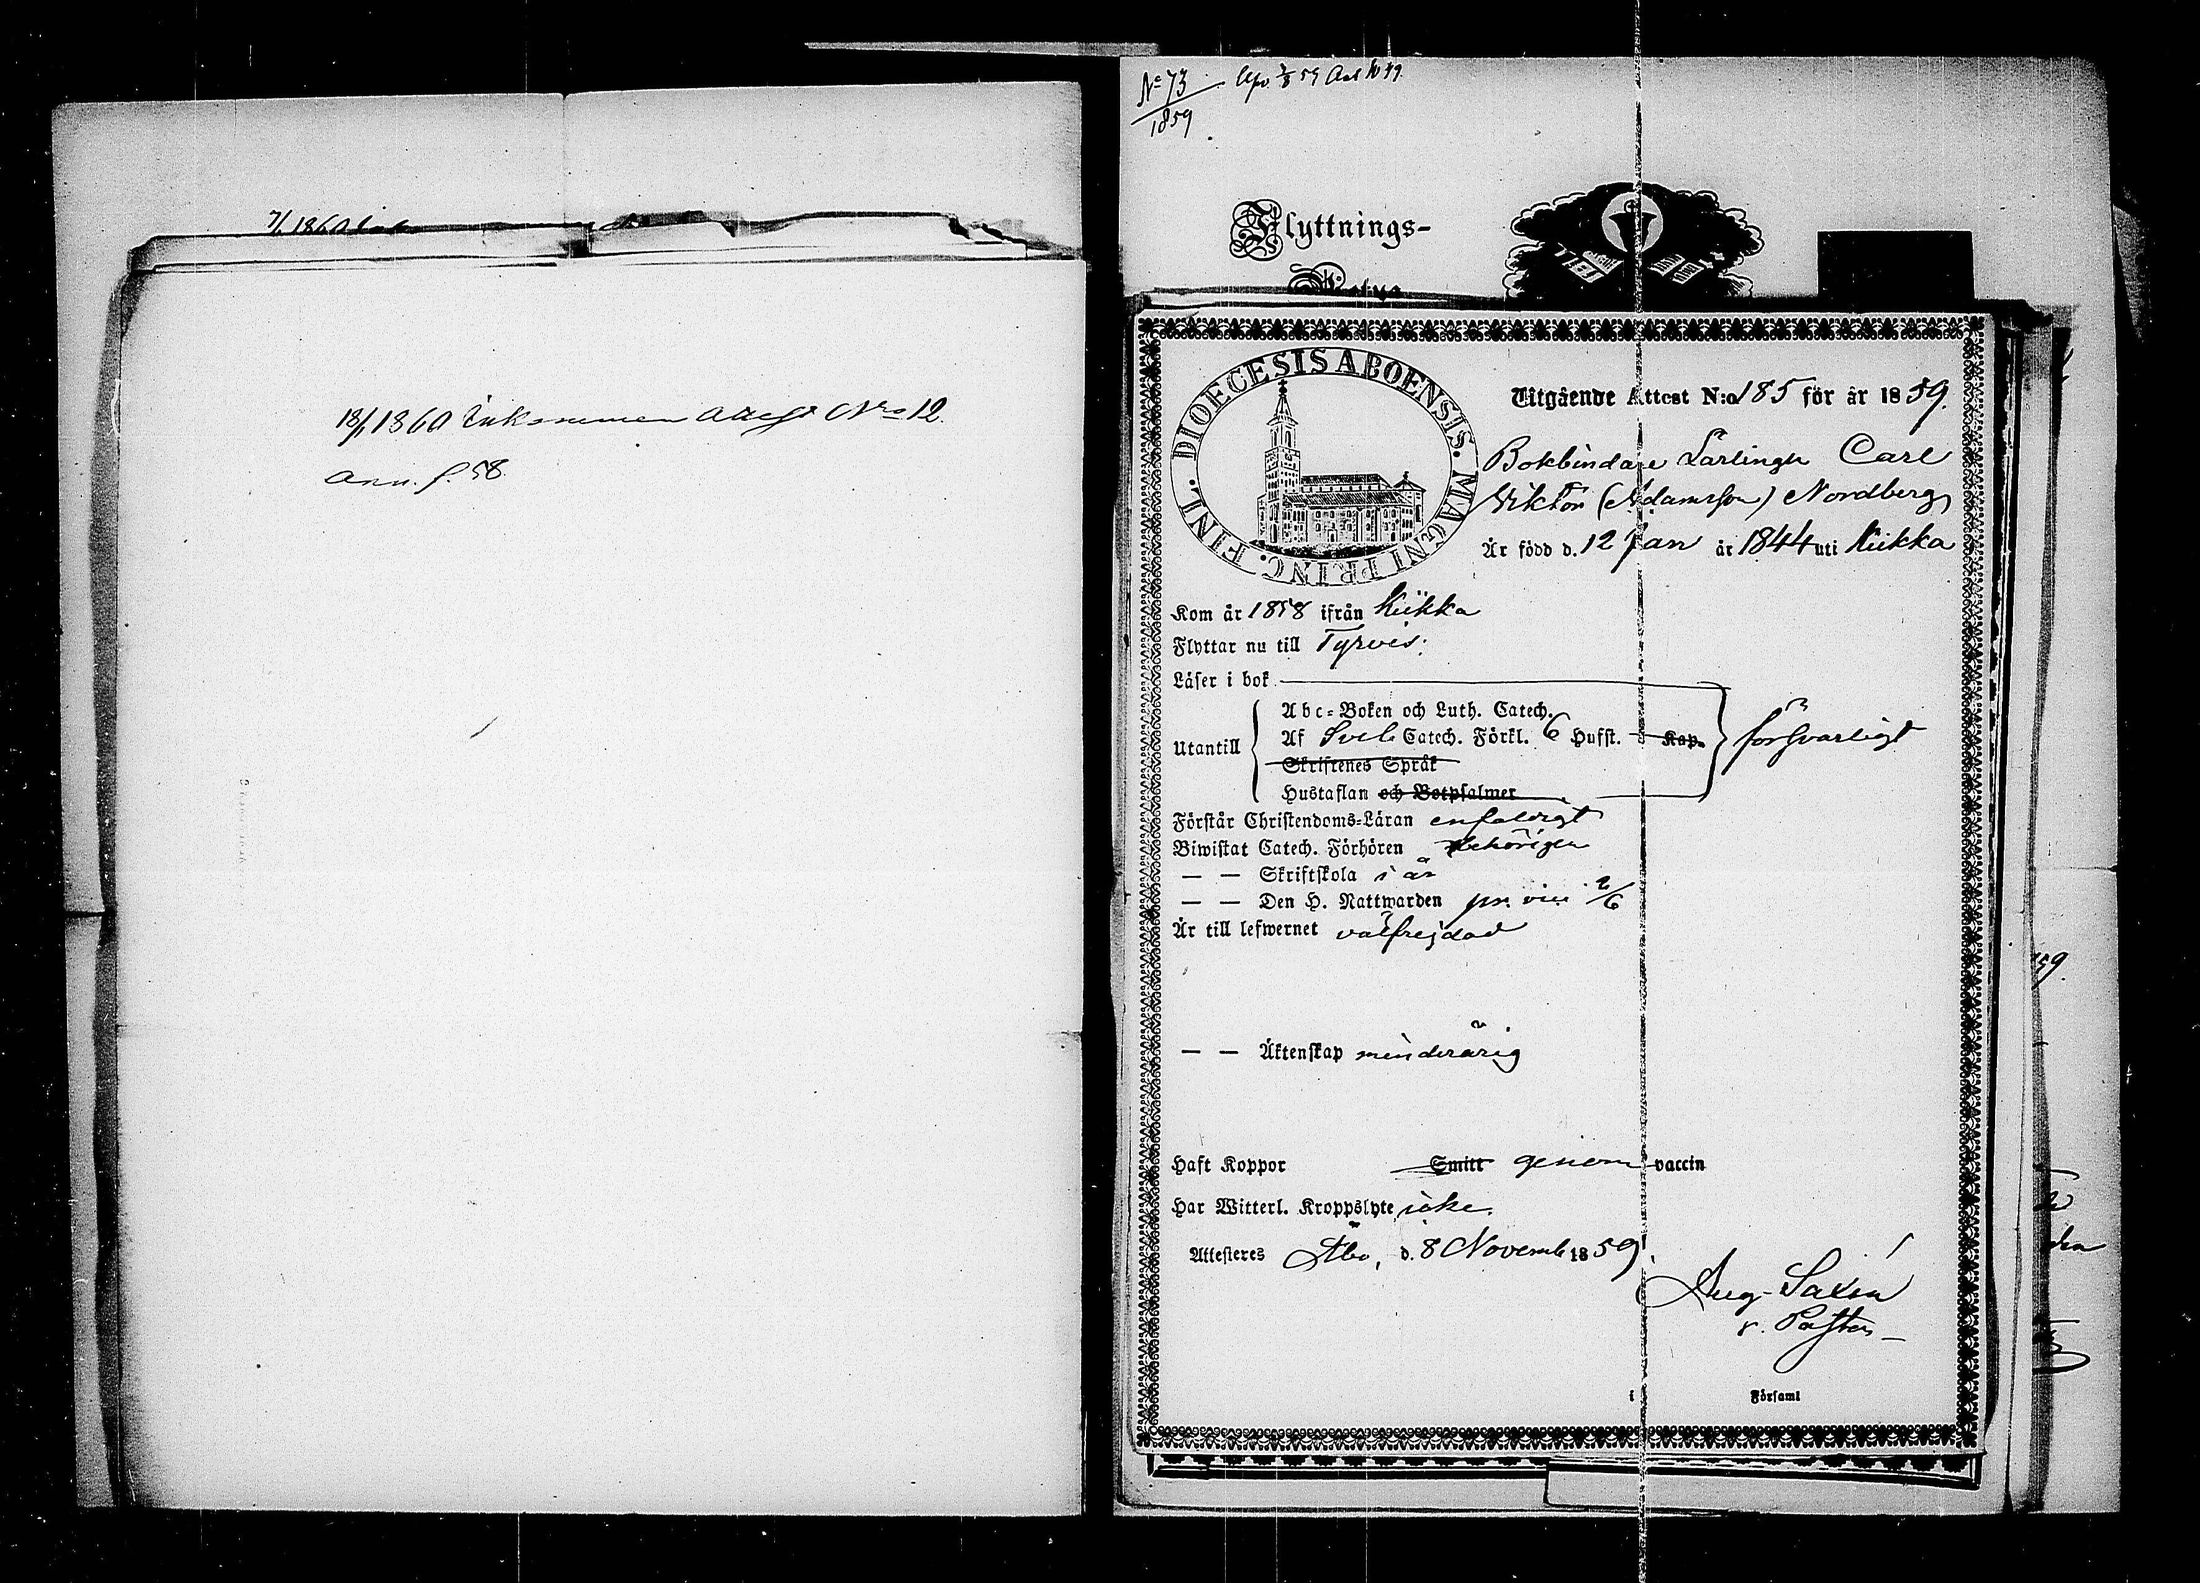 18/1 1860 Inkommen Attest Nro 12.
Ann. f. 58.
No 73
1859
Flyttnings-
DIOECESIS ABOENSIS. MAGNI PRINC. FINL.
Utgående Attest N:o 185 för år 1859.
Bokbindare Lärlingen Carl
Viktor (Adamsson) Nordberg
Är född d. 12 Jan år 1844 uti Kiikka
Kom år 1858 ifrån Kiikka
Flyttar nu till Tyrvis.
Läser i bok
Abc-Boken och Luth. Catech.
Utantill Af Sveb Catech. Förkl. 6 Hufst. Kap. försvarligt
Skriftenes Språk
Hustaflan och Botpsalmer
Förstår Christendoms-Läran enfaldigt
Biwistat Catech. Förhören behörigen
— — Skriftskola i år
— — Den H. Nattwarden pr. vici 2/6
Är till lefwernet välfrejdad
— — Äktenskap minderårig
Haft Koppor Smitt genom vaccin
Har Witterl. Kroppslyte icke.
Attesteres Åbo, d. 8 Novemb 1859
Aug. Saxén
v. Pastor
i Församl